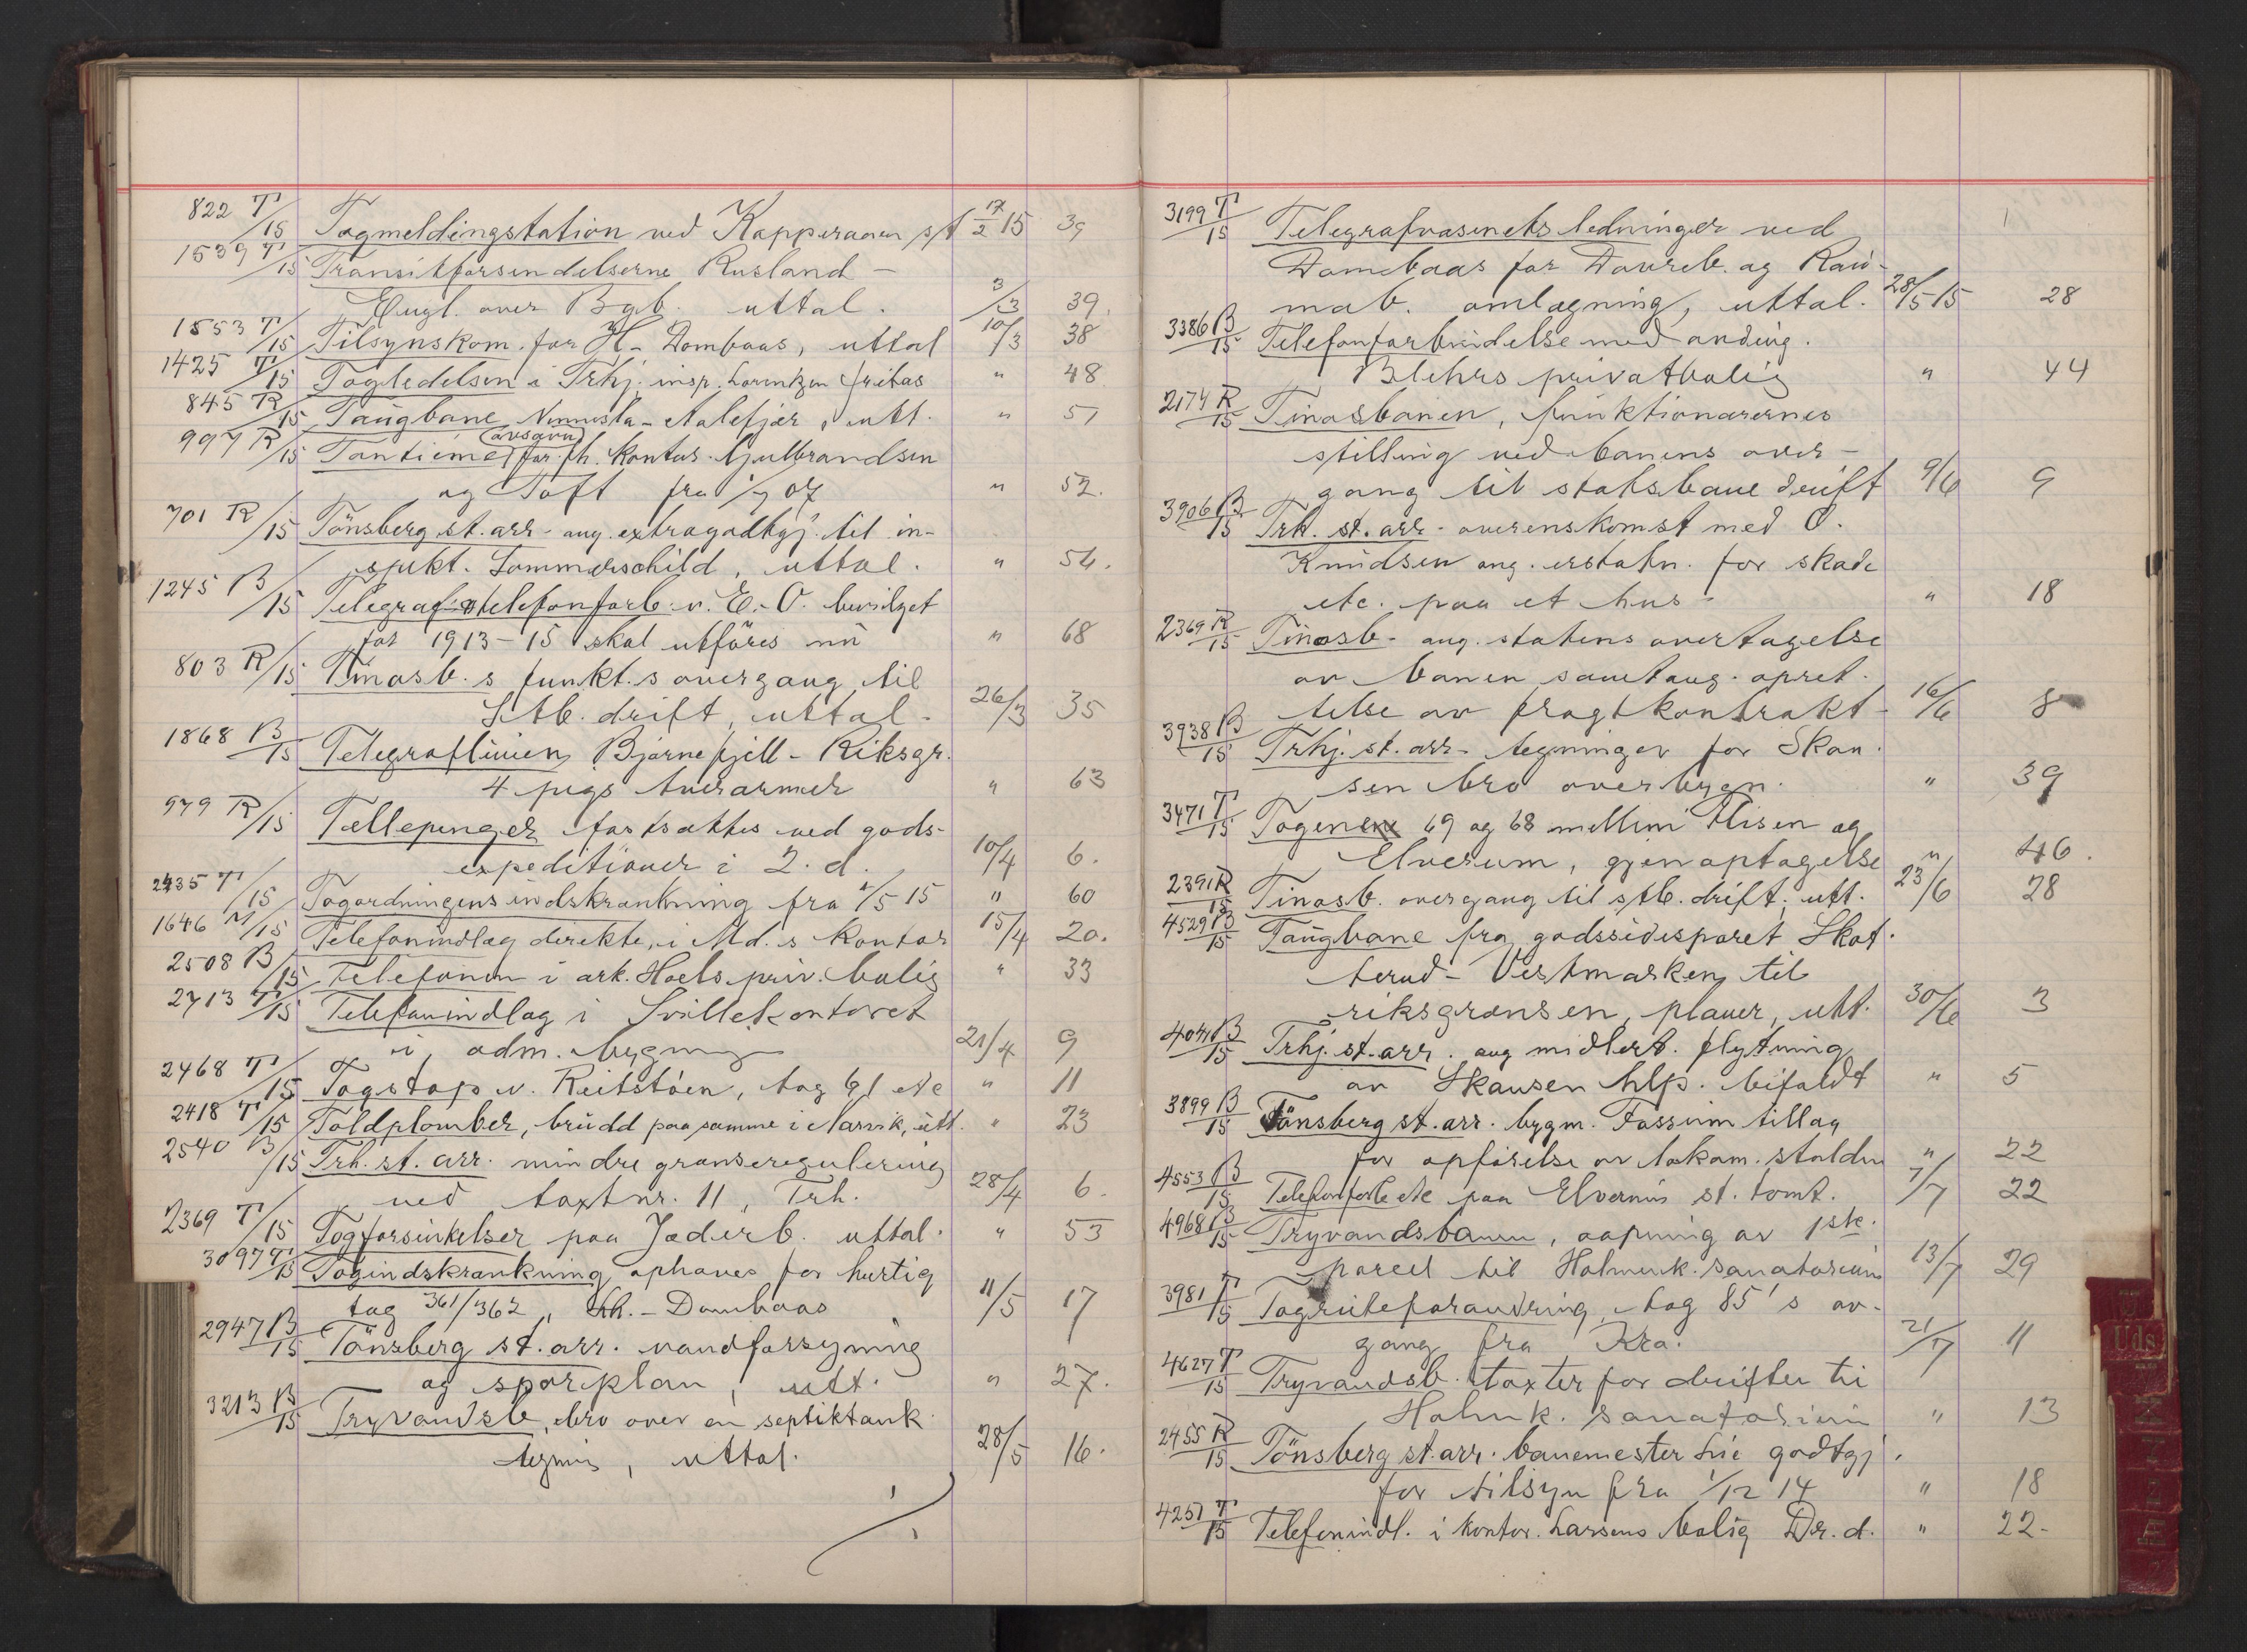 822 T/15 Togmeldingstation ved Kapperaaen s/t 17/2 15 39
1539 T/15 Transitforsendelserne Rusland -
Engl. over Bgb. uttal. 3/3 39.
1553 T/15 Tilsynskom. for H- Dombaas, uttal 10/3 38
1425 T/15 Togledelsen i Trhj. insp. Lorentzen fritas " 48
845 R/15 Taugbane Nennesta - Aalefjær, utt. " 51
997 R/15 Tantieme (avsavn) for fh. kontor. Gulbrandsen
og Toft fra 1/7 07 " 52.
701 R/15 Tönsberg st. arr - ang. extragodtgj. til in-
spekt. Sommerschild, uttal. " 54.
1245 B/15 Telegraf- & telefonforb. v. E.-O. bevilget
for 1913-15 skal utföres nu " 68
803 R/15 Tinosb.s funkt.s overgang til
Stb. drift, uttal. 26/3 35
1868 B/15 Telegraflinien Bjørnefjell - Riksgr.
4 pigs tverarmer " 63
979 R/15 Tællepenger fastsættes ved gods-
expeditioner i 2. d. 10/4 6.
2435 T/15 Togordningens indskrænkning fra 1/5 15 " 60
1646 M/15 Telefonindlæg direkte, i Md.s kontor 15/4 20.
2508 B/15 Telefonen i ark. Hoels priv. bolig " 33
2713 T/15 Telefonindlæg i Svillekontoret
i, adm. bygning 21/4 9
2468 T/15 Togstop v. Reitstöen, tog 61 etc " 11
2418 T/15 Toldplomber, brudd paa samme i Narvik, utt. " 23
2540 B/15 Trh. st. arr. mindre grænseregulering
ved taxtnr. 11, Trh. 28/4 6.
2369 T/15 Togforsinkelser paa Jæderb. uttal. " 53
3097 T/15 Togindskrænkning ophæves for hurtig
tog 361/362, Lh. - Dombaas 11/5 17
2947 B/15 Tönsberg st. arr. vandforsyning
og sporplan, utt. " 27.
3213 B/15 Tryvandsb, bro over en septiktank
tegning, uttal. 28/5 16.
3199 T/15 Telegrafvæsenets ledninger ved
Dombaas for Dovreb. og Rau-
mab. omlægning, uttal. 28/5 15 28
3386 B/15 Telefonforbindelse med avding.
Blehrs privatbolig " 44
2174 R/15 Tinosbanen, funktionærernes
stilling ved banens over-
gang til statsbane drift 9/6 9
3906 B/15 Trh. st. arr - overenskomst med O.
Knudsen ang. erstatn. for skade
etc. paa et hus - " 18
2369 R/15 Tinosb - ang. statens overtagelse
av banen samt ang. opret-
telse av fragtkontrakt - 16/6 8
3938 B/15 Trhj. st. arr - tegninger for Skan-
sen bro overbygn. " 39
3471 T/15 Togene 69 og 68 mellem Flisen og
Elverum, gjenoptagelse " 46.
2391 R/15 Tinosb. overgang til stb. drift, utt. 23/6 28
4529 B/15 Taugbane fra godssidesporet Skot-
terud - Vestmarken til
riksgrænsen, planer, utt. 30/6 3
4041 B/15 Trhj. st. arr. ang midlert. flytning
av Skansen hlp. bifaldt " 5
3899 B/15 Tönsberg st. arr. bygm. Fossum tillæg
for opförelse av lokom. stalden " 22
4553 B/15 Telefonforb. etc paa Elverum st. tomt. 7/7 22
4968 B/15 Tryvandsbanen, aapning av 1ste.
parcel til Holmenk. sanatorium 13/7 29
3981 T/15 Togruteforandring, tog 85's av-
gang fra Kra. 21/7 11
4627 T/15 Tryvandsb. taxter for driften til
Holmk. sanatorium " 13
2455 R/15 Tönsberg st. arr. banemester Lie godtgj.
for tilsyn fra 1/12 14 " 18
4251 T/15 Telefonindl. i kontor. Larsens bolig Dr. d. " 22.
Uds